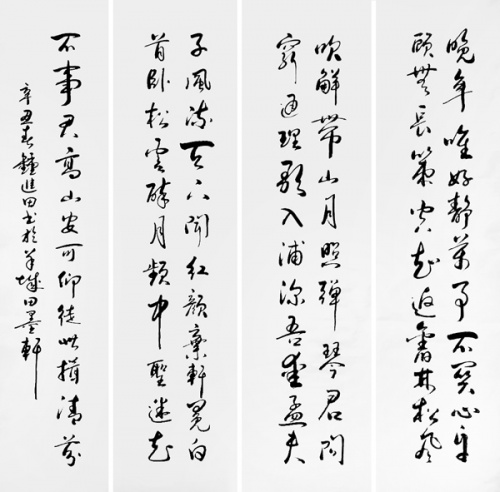 晚年唯好靜萬事不関心自
顧無長策空知返舊林松風
吹解帶山月照彈琴君問
窮通理歌入浦深吾愛孟夫
子風流天下聞紅顏棄軒冕白
首卧松雲醉月頻中聖迷花
不事君高山安可仰徒此揖清芬
辛丑春鐘進田书於羊城田墨軒